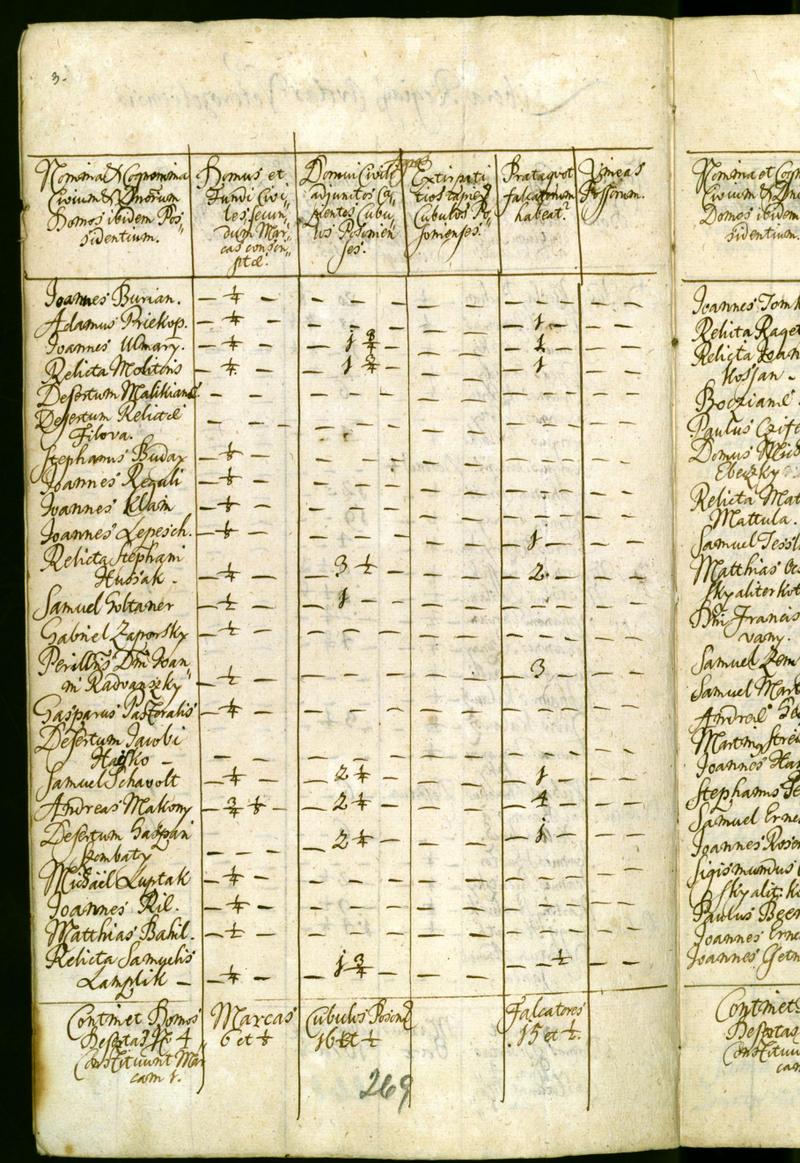 3.
Nomina & Cognomina
Civium & Quorum
Domos ibidem Pos„
sidentium.
Domus et
Fundi Civi„
les secun„
dum Mar„
cas consen„
Domui Civili
adjunctos
Cubu„
los Posonien
ses.
Extirpati
Cubulos Po„
sonienses.
Prata quot
falcatorum
habeat?
Vineas
Fossorum.
Joannes Burian. – 1/4 – – – – – – – – – –
Adamus Priekop. – 1/4 – – – – – – 1 – – –
Joannes Ulmary. – 1/4 – 1 3/4 – – 1 – – –
Relicta Molitoris – 1/4 – 1 3/4 – – 1 – – –
Desertum
Desertum Relictæ
Filova. – – – – – – – – – –
Stephanus Buday – 1/8 – – – – – – – – – –
Joannes Regali – 1/8 – – – – – – – – – –
Joannes Klain – 1/8 – – – – – – – – – –
Joannes Lepesch. – 1/8 – – – – – – 1 – – –
Relicta Stephani
Hussak – – 1/4 – 3 1/2 – – – 2 – – –
Samuel Goltaner – 1/2 – 1 – – – – – – –
Gabriel Zaporsky – 1/2 – – – – – – – – – –
Perillus Dni Joan„
ni Radvanszky – 1/2 – – – – – – 3 – – –
Gasparus Pastoralis – 1/4 – – – – – – – – – –
Desertum Jacobi
– – – – – – – – – –
Samuel Schavolt – 1/4 – 2 1/4 – – – 1 – – –
Andreas Makony – 3/4 1/8 – 2 1/4 – – – 4 – – –
Desertum Gaspari
Szombaty – – – 2 1/4 – – – 1 – – –
Michaël Luptak – 1/4 – – – – – – – – – –
Joannes Ril. – 1/4 – – – – – – – – – –
Matthias Bahil. – 1/2 – – – – – – – – – –
Relicta Samuelis
Lamplik – – 1/4 – 1 3/4 – – – 1/2 – – –
Continet Domos
Desertas No 4
Constituunt Mar
cam 1.
Marcas
6 et 1/8
Cubulos Poson
16 et 1/2
Falcatores
15 et 1/2.
269
Nomina et Cog
Domos ibidem
sidentium.
Joannes Tom
Relicta
Relicta
Paulus
Domus
Relicta Mat
Mattula.
Samuel Tessl
Matthias
Dni Francis
vany.
Samuel
Samuel Mar
Andreæ
Joannes Han
Stephanus
Samuel Erne
Joannes Rosen
Sigismundus
Paulus
Joannes Erne
Joannes
Continet
Desertas
Constituun
cam